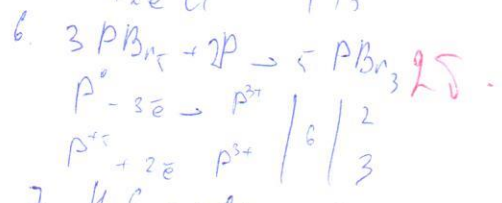 6. 3 PBr₅ + 2P → 5 PBr₃ 2б.
P⁰ - 3ē → P³⁺ | 6 | 2
P⁺⁵ + 2ē P³⁺ | | 3